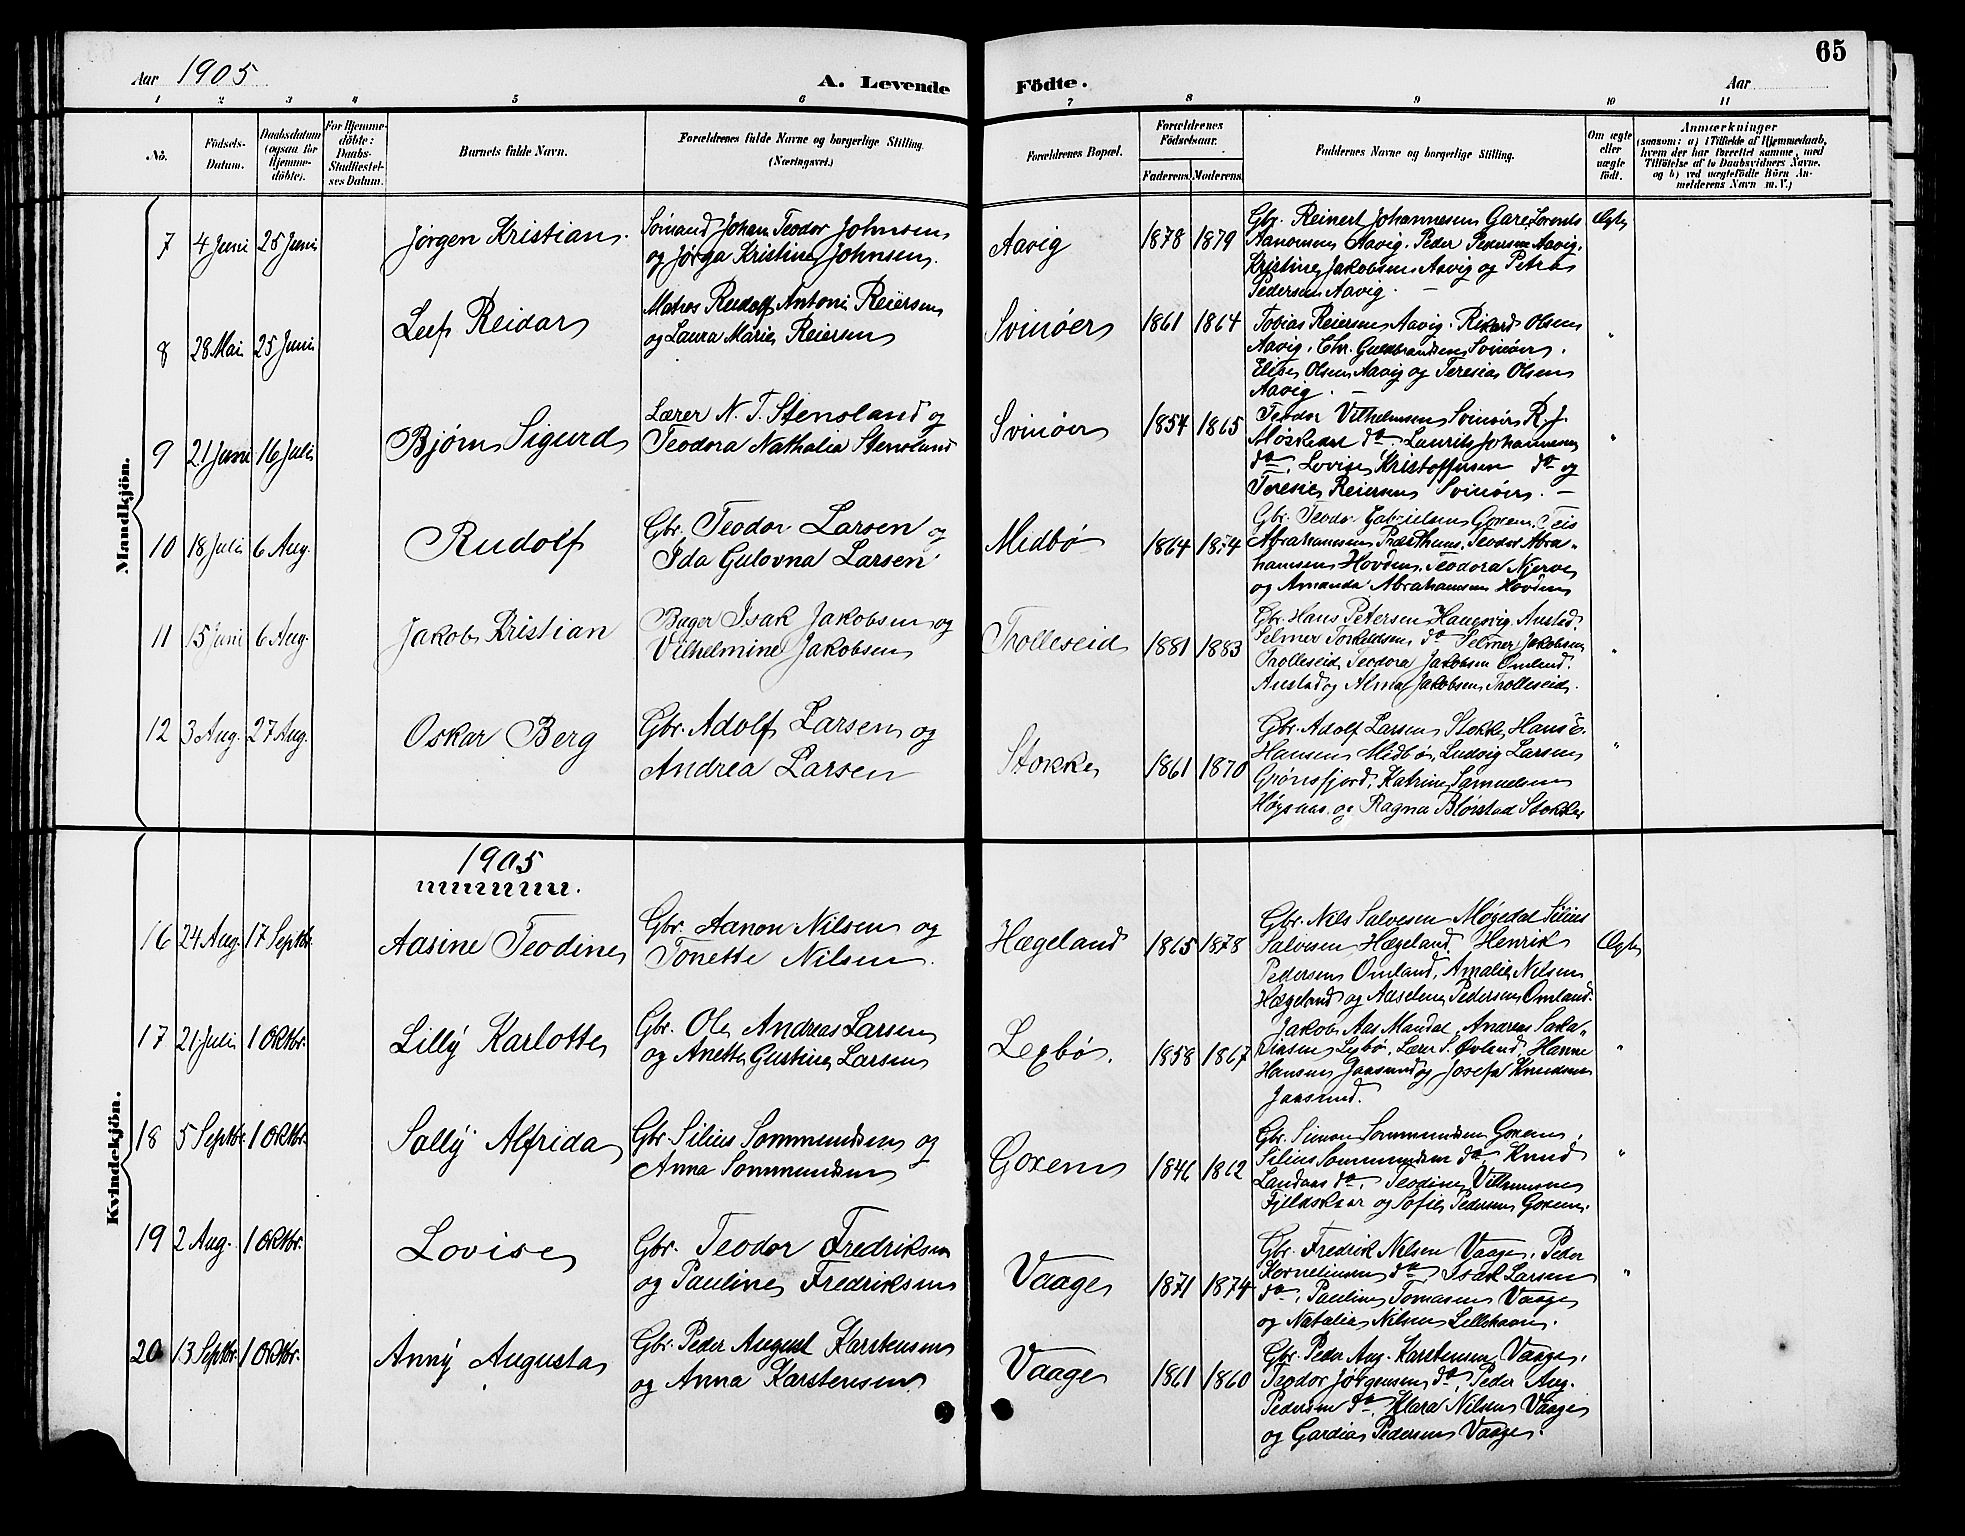 65
Aar 1905 A. Levende Födte. Aar
1 2 3 4 5 6 7 8 9 10 11
No. Födsels-Datum. Daabsdatum (ogsaa for Hjemme-döbte). For Hjemme-döbte: Daabs-Stadfæstel-ses Datum. Barnets fulde Navn. Forældrenes fulde Navne og borgerlige Stilling. (Næringsvei.) Forældrenes Bopæl. Forældrenes Födselsaar. Faderens. Moderens. Faddernes Navne og borgerlige Stilling. Om ægte eller uægte födt. Anmærkninger (saasom: a) i Tilfælde af Hjemmedaab, hvem der har forrettet samme, med Tilföielse af to Daabsvidners Navne, og b) ved uægtefödte Börn Anmelderens Navn m. V.)
Mandkjön.
7 4 Juni 25 Juni Jørgen Kristian. Sømand Johan Teodor Johnsen
og Jørga Kristine Johnsen. Aavig 1878 1879 Gbr. Reinert Johannesen Gare, Lorents
Aanonsen Aavig. Peder Pedersen Aavig,
Kristine Jakobsen Aavig og Petra
Pedersen Aavig. Ægte
8 28 Mai 25 Juni Leif Reidar Matros Rudolf Antoni Reiersen
og Laura Marie Reiersen Svinøer 1861 1864 Tobias Reiersen Aavig. Rikard Olsen
Aavig, Chr. Guldbrandsen Svinøer.
Elise Olsen Aavig og Teresia Olsen
Aavig. "
9 21 Juni 16 Juli Bjørn Sigurd Lærer N. T. Stensland og
Teodora Nathalia Stensland Svinøer 1854 1865 Teodor Vilhelmsen Svinøer R. J.
do. Laurits Johannesen
do, Lovise Kristoffersen do og
Teresie Reiersen Svinøer. "
10 18 Juli 6 Aug. Rudolf Gbr. Teodor Larsen og
Ida Gulovna Larsen Midbø 1864 1874 Gbr. Teodor Gabrielsen Goxem. Teis
Abrahamsen Præsthus. Teodor Abra-
hamsen Hovden, Teodora Njerve
og Amanda Abrahamsen Hovden "
11 15 Juni 6 Aug. Jakob Kristian Bager Isak Jakobsen og
Vilhelmine Jakobsen Trolleseid 1881 1883 Gbr. Hans Petersen Haugsvig, Austad
Selmer Torkeldsen do Selmer Jakobsen
Trolleseid, Teodora Jakobsen Omland.
Austad og Alma Jakobsen, Trolleseid. "
12 3 Aug. 27 Aug. Oskar Berg Gbr. Adolf Larsen og
Andrea Larsen Stokke 1861 1870 Gbr. Adolf Larsen Stokke, Hans E.
Hansen Midbø, Ludvig Larsen
Grønsfjord, Katrine Samuelsen
Høgsaas og Ragna Blørstad Stokke "
Kvindekjön.
1905
16 24 Aug. 17 Septbr. Aasine Teodine Gbr. Aanon Nilsen og
Tonette Nilsen. Hægeland 1865 1878 Gbr. Nils Salvesen Møgedal Silius
Salvesen Hægeland, Henrik
Pedersen Omland, Amalie Nilsen
Hægeland og Aaselene Pedersen Omland. Ægte
17 21 Juli 1 Oktbr. Lilly Karlotte Gbr. Ole Andreas Larsen
og Anette Gustine Larsen Lexbø. 1858 1867 Jakob Aas Mandal, Andreas Saka-
riasen Lexbø, Lærer S. Øvland, Hanne
Hansen Jaasund og Josefa Knudsen
Jaasund. "
18 5 Septbr. 1 Oktbr. Sally Alfrida Gbr. Silius Sommundsen og
Anna Sommundsen Goxem 1846 1862 Gbr. Simon Sommundsen Goxem,
Silius Sommundsen do, Knud
Landaas do, Teodine Villumsen
Fjeldskaar og Sofie Pedersen Goxem. "
19 2 Aug. 1 Oktbr. Lovise Gbr. Teodor Fredriksen
og Pauline Fredriksen Vaage 1871 1874 Gbr. Fredrik Nilsen Vaage, Peder
Korneliussen do, Isak Larsen
do, Pauline Tomasen Vaage
og Natalia Nilsen Lillehavn. "
20 13 Septbr. 1 Oktbr. Anny Augusta Gbr. Peder August Karstensen
og Anna Karstensen. Vaage 1861 1860 Gbr. Peder Aug. Karstensen, Vaage,
Teodor Jørgensen do, Peder Aug.
Pedersen do, Klara Nilsen Vaage
og Gardia Pedersen Vaage.